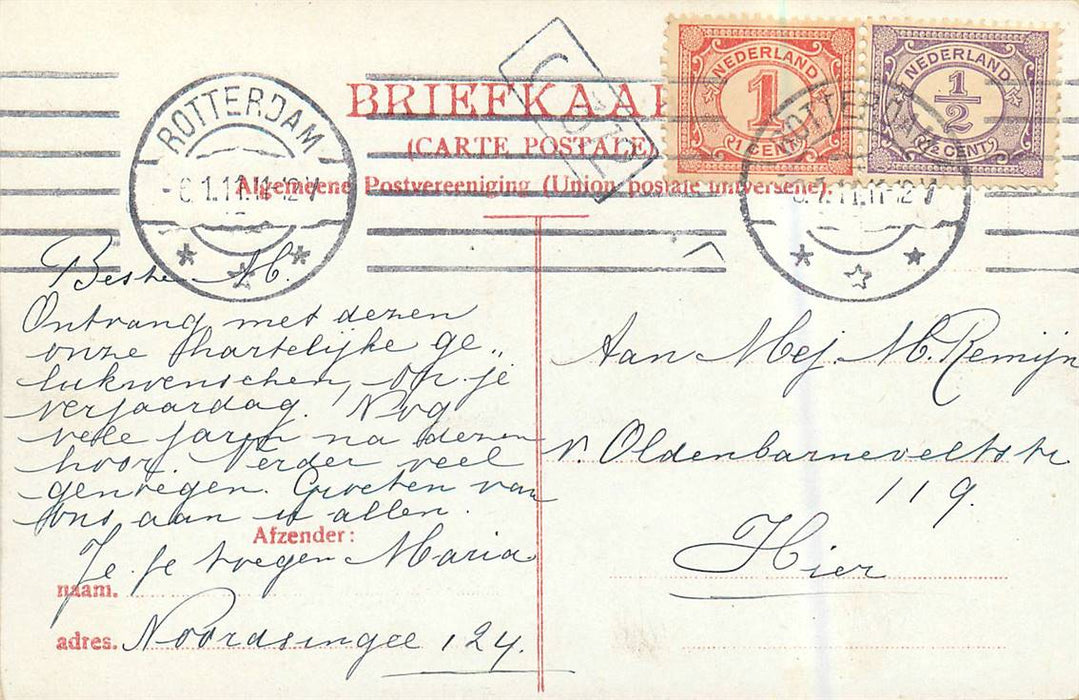 BRIEFKAA
(CARTE POSTALE)
Algemeene Postvereeniging (Union postale universelle).
NEDERLAND
1
1 CENT
NEDERLAND
1/2
1/2 CENT
ROTTERDAM
6.1.11.11-12V
ROTTERDAM
6.1.11.11-12V
Beste M.
Ontvang met dezen
onze hartelijke ge„
lukwenschen, op je
verjaardag. Nog
vele jaren na dezen
hoor. Verder veel
genoegen. Groeten van
ons aan u allen.
Afzender:
Maria
naam.
adres. Noordsingel 124.
Aan Mej. M. Remijn
v. Oldenbarneveltstr
119.
Hier